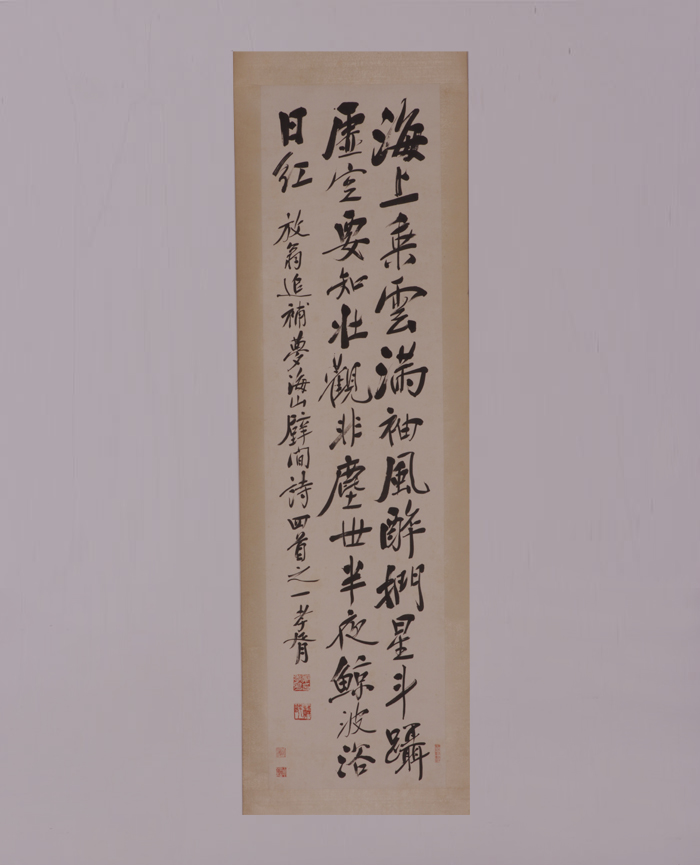 海上乗雲滿袖風醉捫星斗躡
虛空要知壯觀非塵世半夜鯨波浴
日紅
放翁追補夢海山壁間詩四首之一孝胥